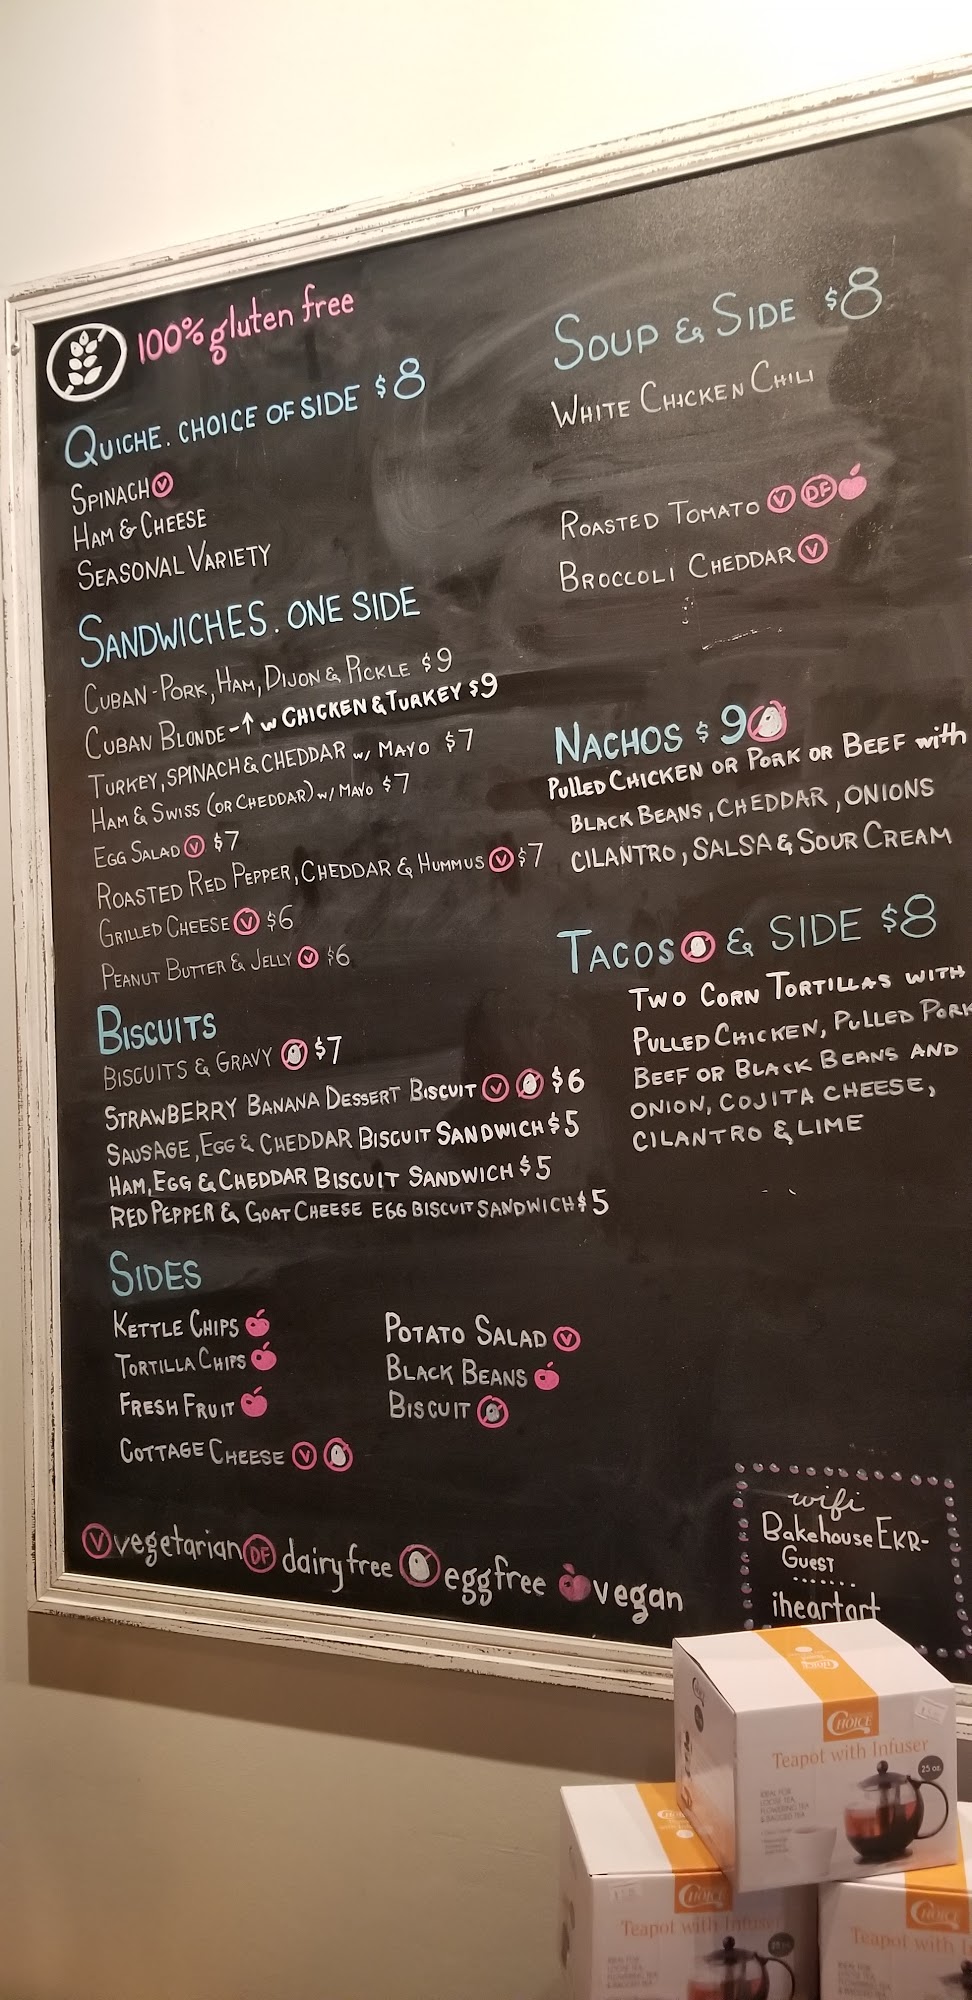 100% gluten free
QUICHE. CHOICE OF SIDE $8
SPINACH V
HAM & CHEESE
SEASONAL VARIETY
SANDWICHES. ONE SIDE
CUBAN-PORK, HAM, DIJON & PICKLE $9
CUBAN BLONDE-↑ w CHICKEN & TURKEY $9
TURKEY, SPINACH & CHEDDAR w/ MAYO $7
HAM & SWISS (OR CHEDDAR) w/ MAYO $7
EGG SALAD V $7
ROASTED RED PEPPER, CHEDDAR & HUMMUS V $7
GRILLED CHEESE V $6
PEANUT BUTTER & JELLY V $6
BISCUITS
BISCUITS & GRAVY $7
STRAWBERRY BANANA DESSERT BISCUIT V $6
SAUSAGE, EGG & CHEDDAR BISCUIT SANDWICH $5
HAM, EGG & CHEDDAR BISCUIT SANDWICH $5
RED PEPPER & GOAT CHEESE EGG BISCUIT SANDWICH $5
SIDES
KETTLE CHIPS
TORTILLA CHIPS
FRESH FRUIT
COTTAGE CHEESE V
POTATO SALAD V
BLACK BEANS
BISCUIT
SOUP & SIDE $8
WHITE CHICKEN CHILI
ROASTED TOMATO V DF
BROCCOLI CHEDDAR V
NACHOS $9
PULLED CHICKEN OR PORK OR BEEF with
BLACK BEANS, CHEDDAR, ONIONS
CILANTRO, SALSA & SOUR CREAM
TACOS & SIDE $8
TWO CORN TORTILLAS WITH
PULLED CHICKEN, PULLED PORK
BEEF OR BLACK BEANS AND
ONION, COJITA CHEESE,
CILANTRO & LIME
V vegetarian DF dairy free egg free vegan
wifi
Bakehouse EKR-
GUEST
iheartart
CHOICE
Teapot with Infuser
25 oz.
IDEAL FOR
LOOSE TEA,
FLOWERING TEA
& BAGGED TEA
CHOICE
Teapot with Infuser
IDEAL FOR
LOOSE TEA,
FLOWERING TEA
& BAGGED TEA
CHOICE
Teapot with